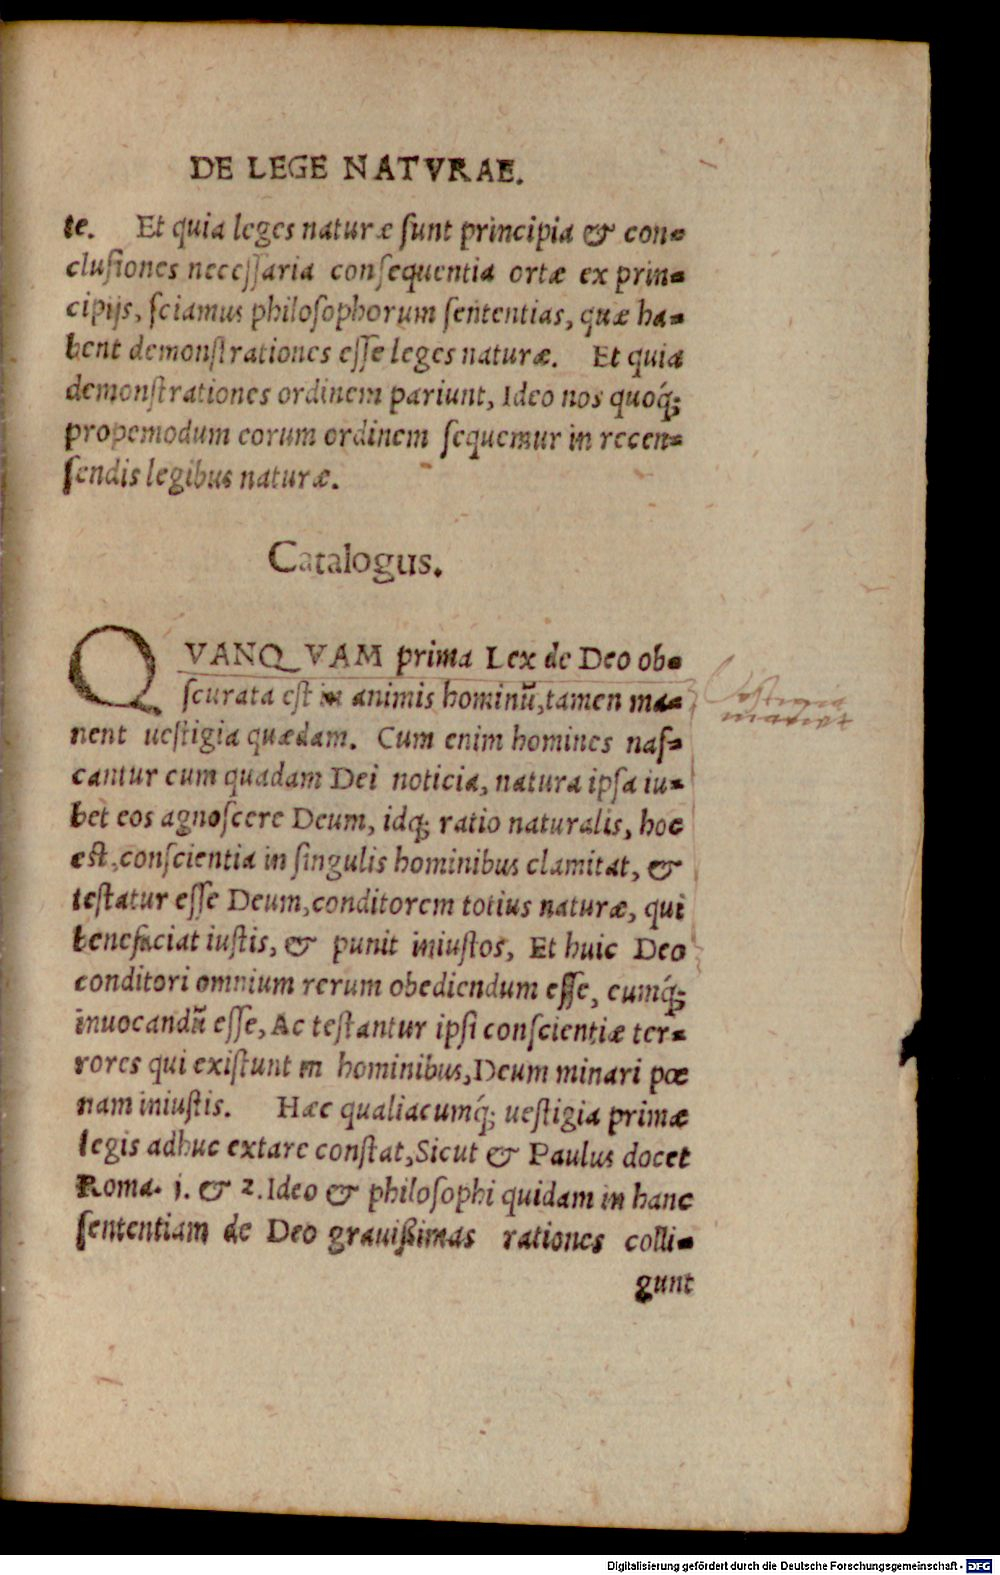 DE LEGE NATVRAE.
te. Et quia leges naturæ ſunt principia & con-
cluſiones neceſſaria conſequentia ortæ ex prin-
cipijs, ſciamus philoſophorum ſententias, quæ ha-
bent demonſtrationes eſſe leges naturæ. Et quia
demonſtrationes ordinem pariunt, Ideo nos quoq́;
propemodum eorum ordinem ſequemur in recen-
ſendis legibus naturæ.
Catalogus.
QVANQVAM prima Lex de Deo ob-
ſcurata eſt in animis hominũ, tamen ma-
nent ueſtigia quædam. Cum enim homines naſ-
cantur cum quadam Dei noticia, natura ipſa iu-
bet eos agnoſcere Deum, idq; ratio naturalis, hoc
est, conſcientia in ſingulis hominibus clamitat, &
teſtatur eſſe Deum, conditorem totius naturæ, qui
benefaciat iuſtis, & punit iniuſtos, Et huic Deo
conditori omnium rerum obediendum eſſe, eumq́;
inuocandũ eſſe, Ac teſtantur ipſi conſcientiæ ter-
rores qui exiſtunt in hominibus, Deum minari pœ
nam iniuſtis. Hæc qualiacumq́; ueſtigia primæ
legis adhuc extare conſtat, Sicut & Paulus docet
Roma. 1. & 2. Ideo & philoſophi quidam in hanc
ſententiam de Deo grauißimas rationes colli-
gunt
Vestigia
manent
Digitalisierung gefördert durch die Deutsche Forschungsgemeinschaft - DFG